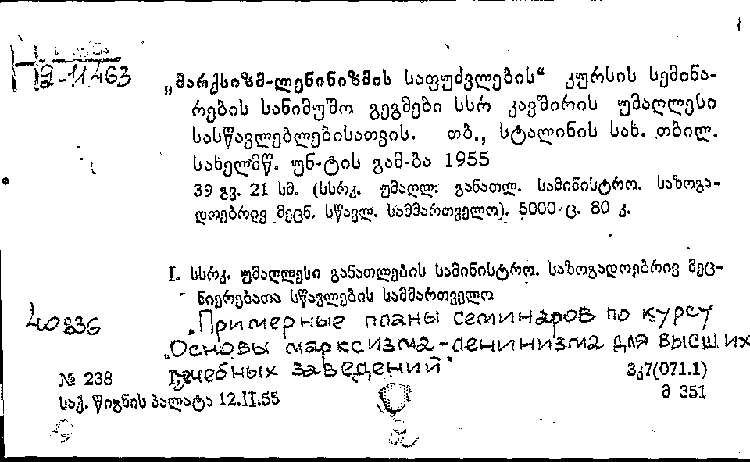 „მარქსიზმ-ლენინიზმის საფუძვლების“ კურსის სემინა-
რების სანიმუშო გეგმები სსრ კავშირის უმაღლესი
სასწავლებლებისათვის. თბ., სტალინის სახ. თბილ.
სახელმწ. უნ-ტის გამ-ბა 1955
39 გვ. 21 სმ. (სსრკ. უმაღლ. განათლ. სამინისტრო. საზოგა-
დოებრივ მეცნ. სწავლ. სამმართველო). 5000 ც. 80 კ.
I. სსრკ. უმაღლესი განათლების სამინისტრო. საზოგადოებრივ მეც-
ნიერებათა სწავლების სამმართველო
40836
„Примерные планы семинаров по курсу
„Основы марксизма-ленинизма для высших
учебных заведений"
№ 238
3კ7(071.1)
საქ. წიგნის პალატა 12.II.55
მ 351